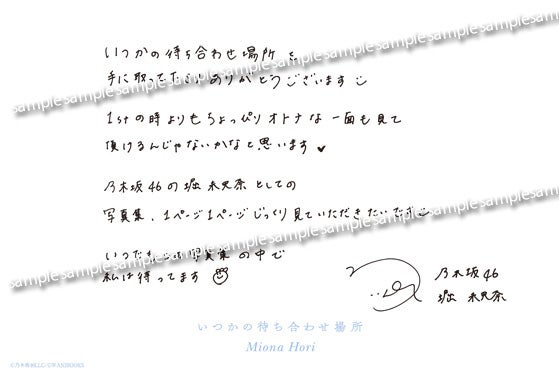 いつかの待ち合わせ場所を
手に取って下さりありがとうございます
1stの時よりもちょっぴりオトナな一面も見て
頂けるんじゃないかなと思います♥
乃木坂46の堀未央奈としての
写真集、1ページ1ページじっくり見ていただきたいです
写真集の中で
私は待ってます
乃木坂46
堀未央奈
sample sample sample sample sample sample sample sample sample
sample sample sample sample sample sample sample sample sample
sample sample sample sample sample sample sample sample sample
いつかの待ち合わせ場所
Miona Hori